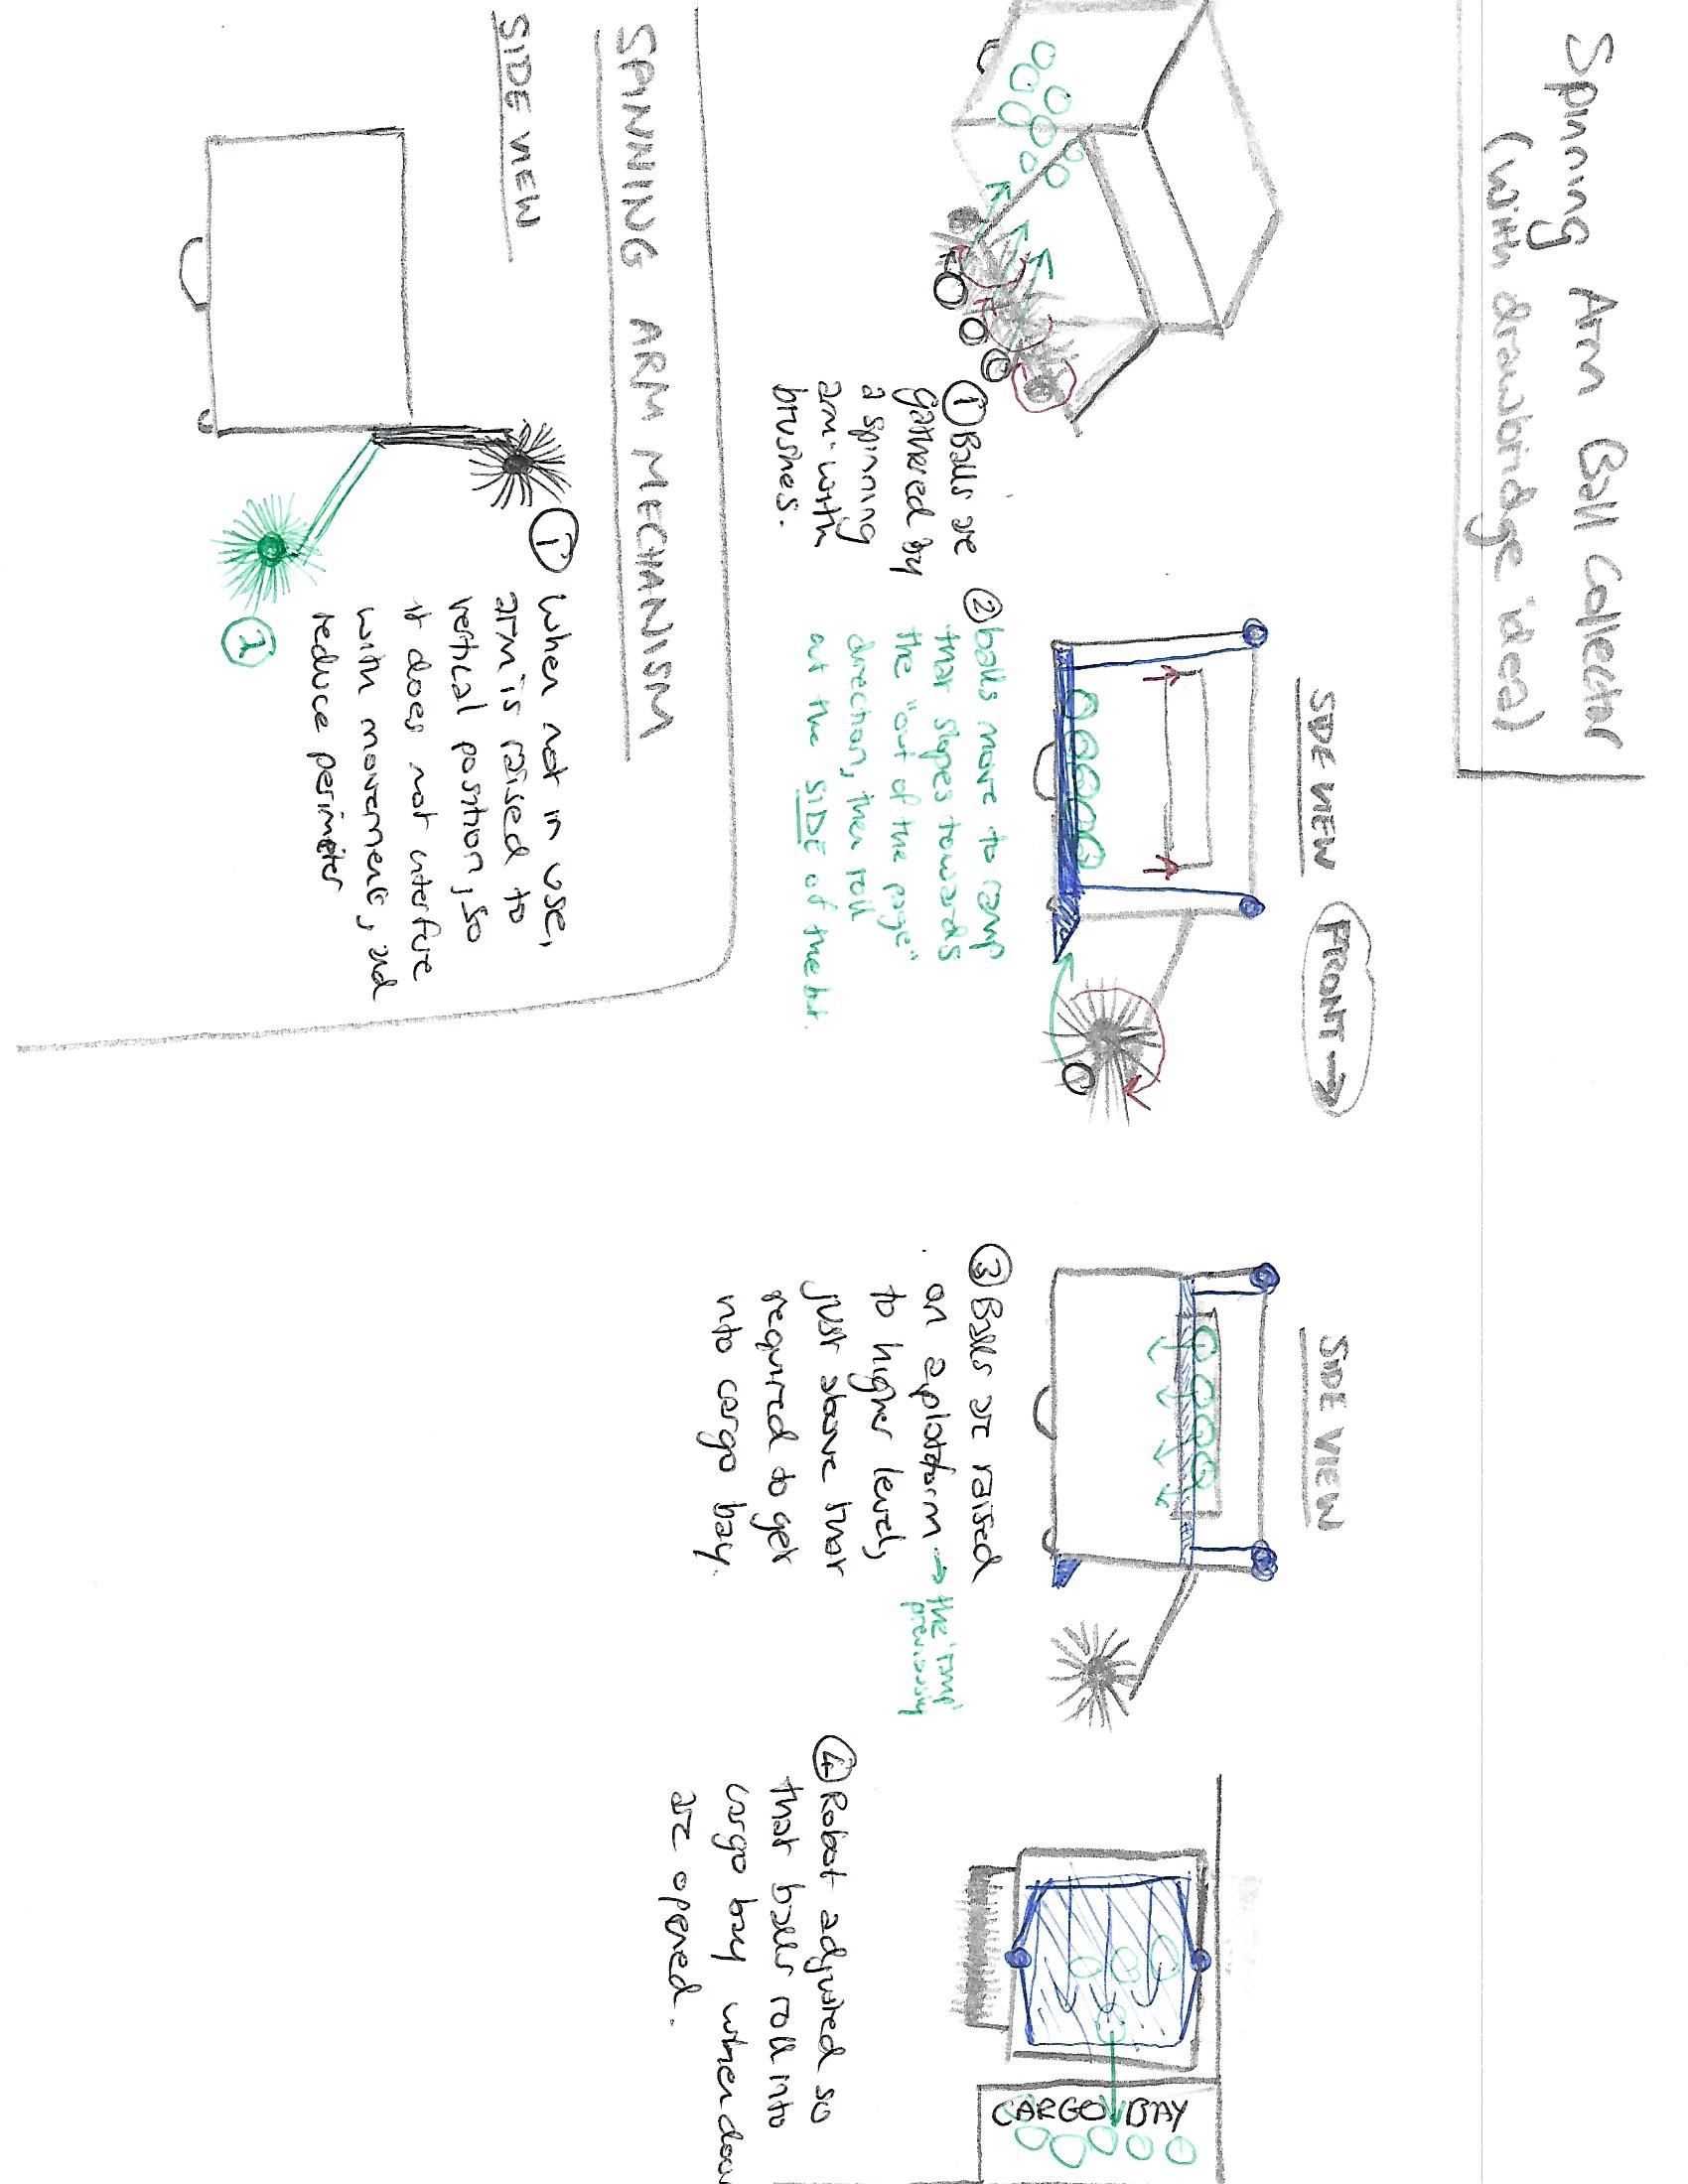 Spinning Arm Ball Collector
(with drawbridge idea)
① Balls are
gathered by
a spinning
arm with
brushes.
SIDE VIEW
FRONT →
② balls move to ramp
that slopes towards
the "out of the page"
direction, then roll
out the SIDE of the bot.
SIDE VIEW
③ Balls are raised
on a platform → the 'ramp'
previously
to higher level,
just above that
required to get
into cargo bay.
CARGO BAY
④ Robot adjusted so
that balls roll into
cargo bay when door
are opened.
SPINNING ARM MECHANISM
SIDE VIEW
① When not in use,
arm is raised to
vertical position, so
it does not interfere
with movement, and
reduce perimeter
②